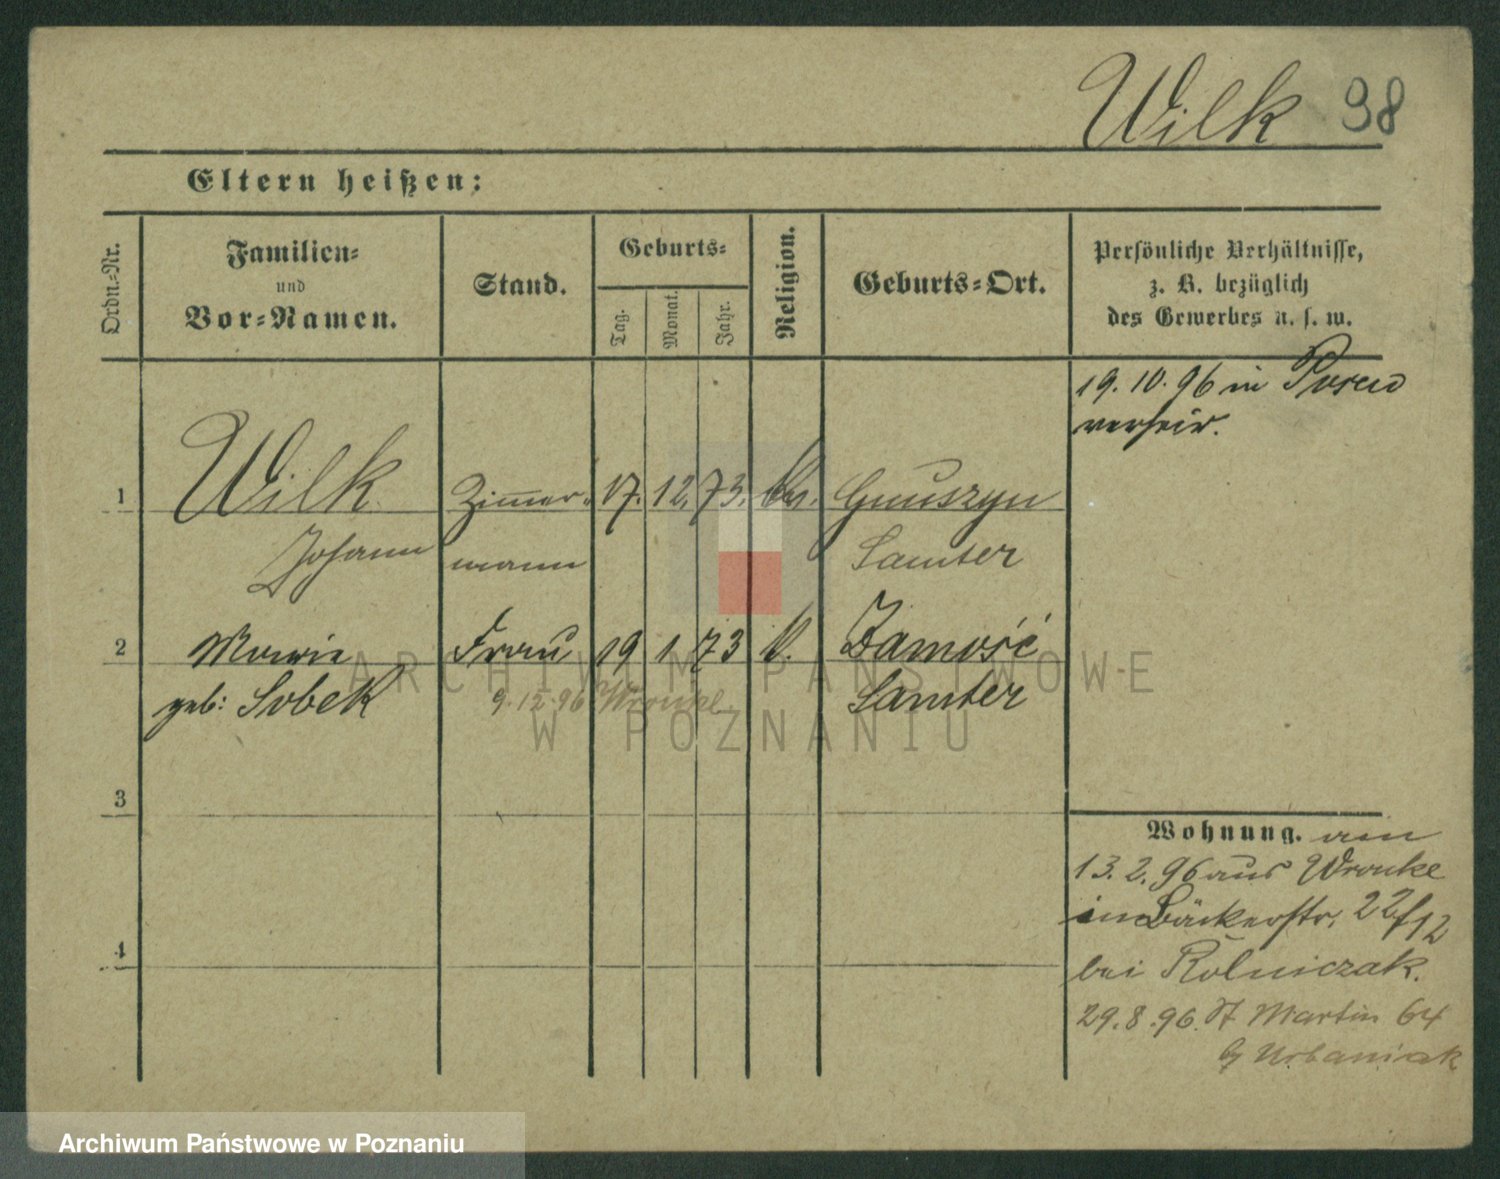 Wilk 98
Eltern heißen:
Ordn.-Nr.
Familien-
und
Vor-Namen.
Stand.
Geburts-
Tag.
Monat.
Jahr.
Religion.
Geburts-Ort.
Persönliche Verhältnisse,
z. B. bezüglich
des Gewerbes u. s. w.
19.10.96 in Posen
verheir.
1 Wilk Zimmer- 17. 12. 73. Gnuszyn
Johann mann Samter
2 Marie Frau 19 1. 73 k. Zamość
geb: Sobek Samter
9.12.96 Wronke
3
4
Wohnung. am
13.2.96 aus Wronke
in Bäckerstr. 22/12
bei Rolniczak.
29.8.96. St Martin 64
b/ Urbaniak
ARCHIWUM PAŃSTWOWE
W POZNANIU
Archiwum Państwowe w Poznaniu